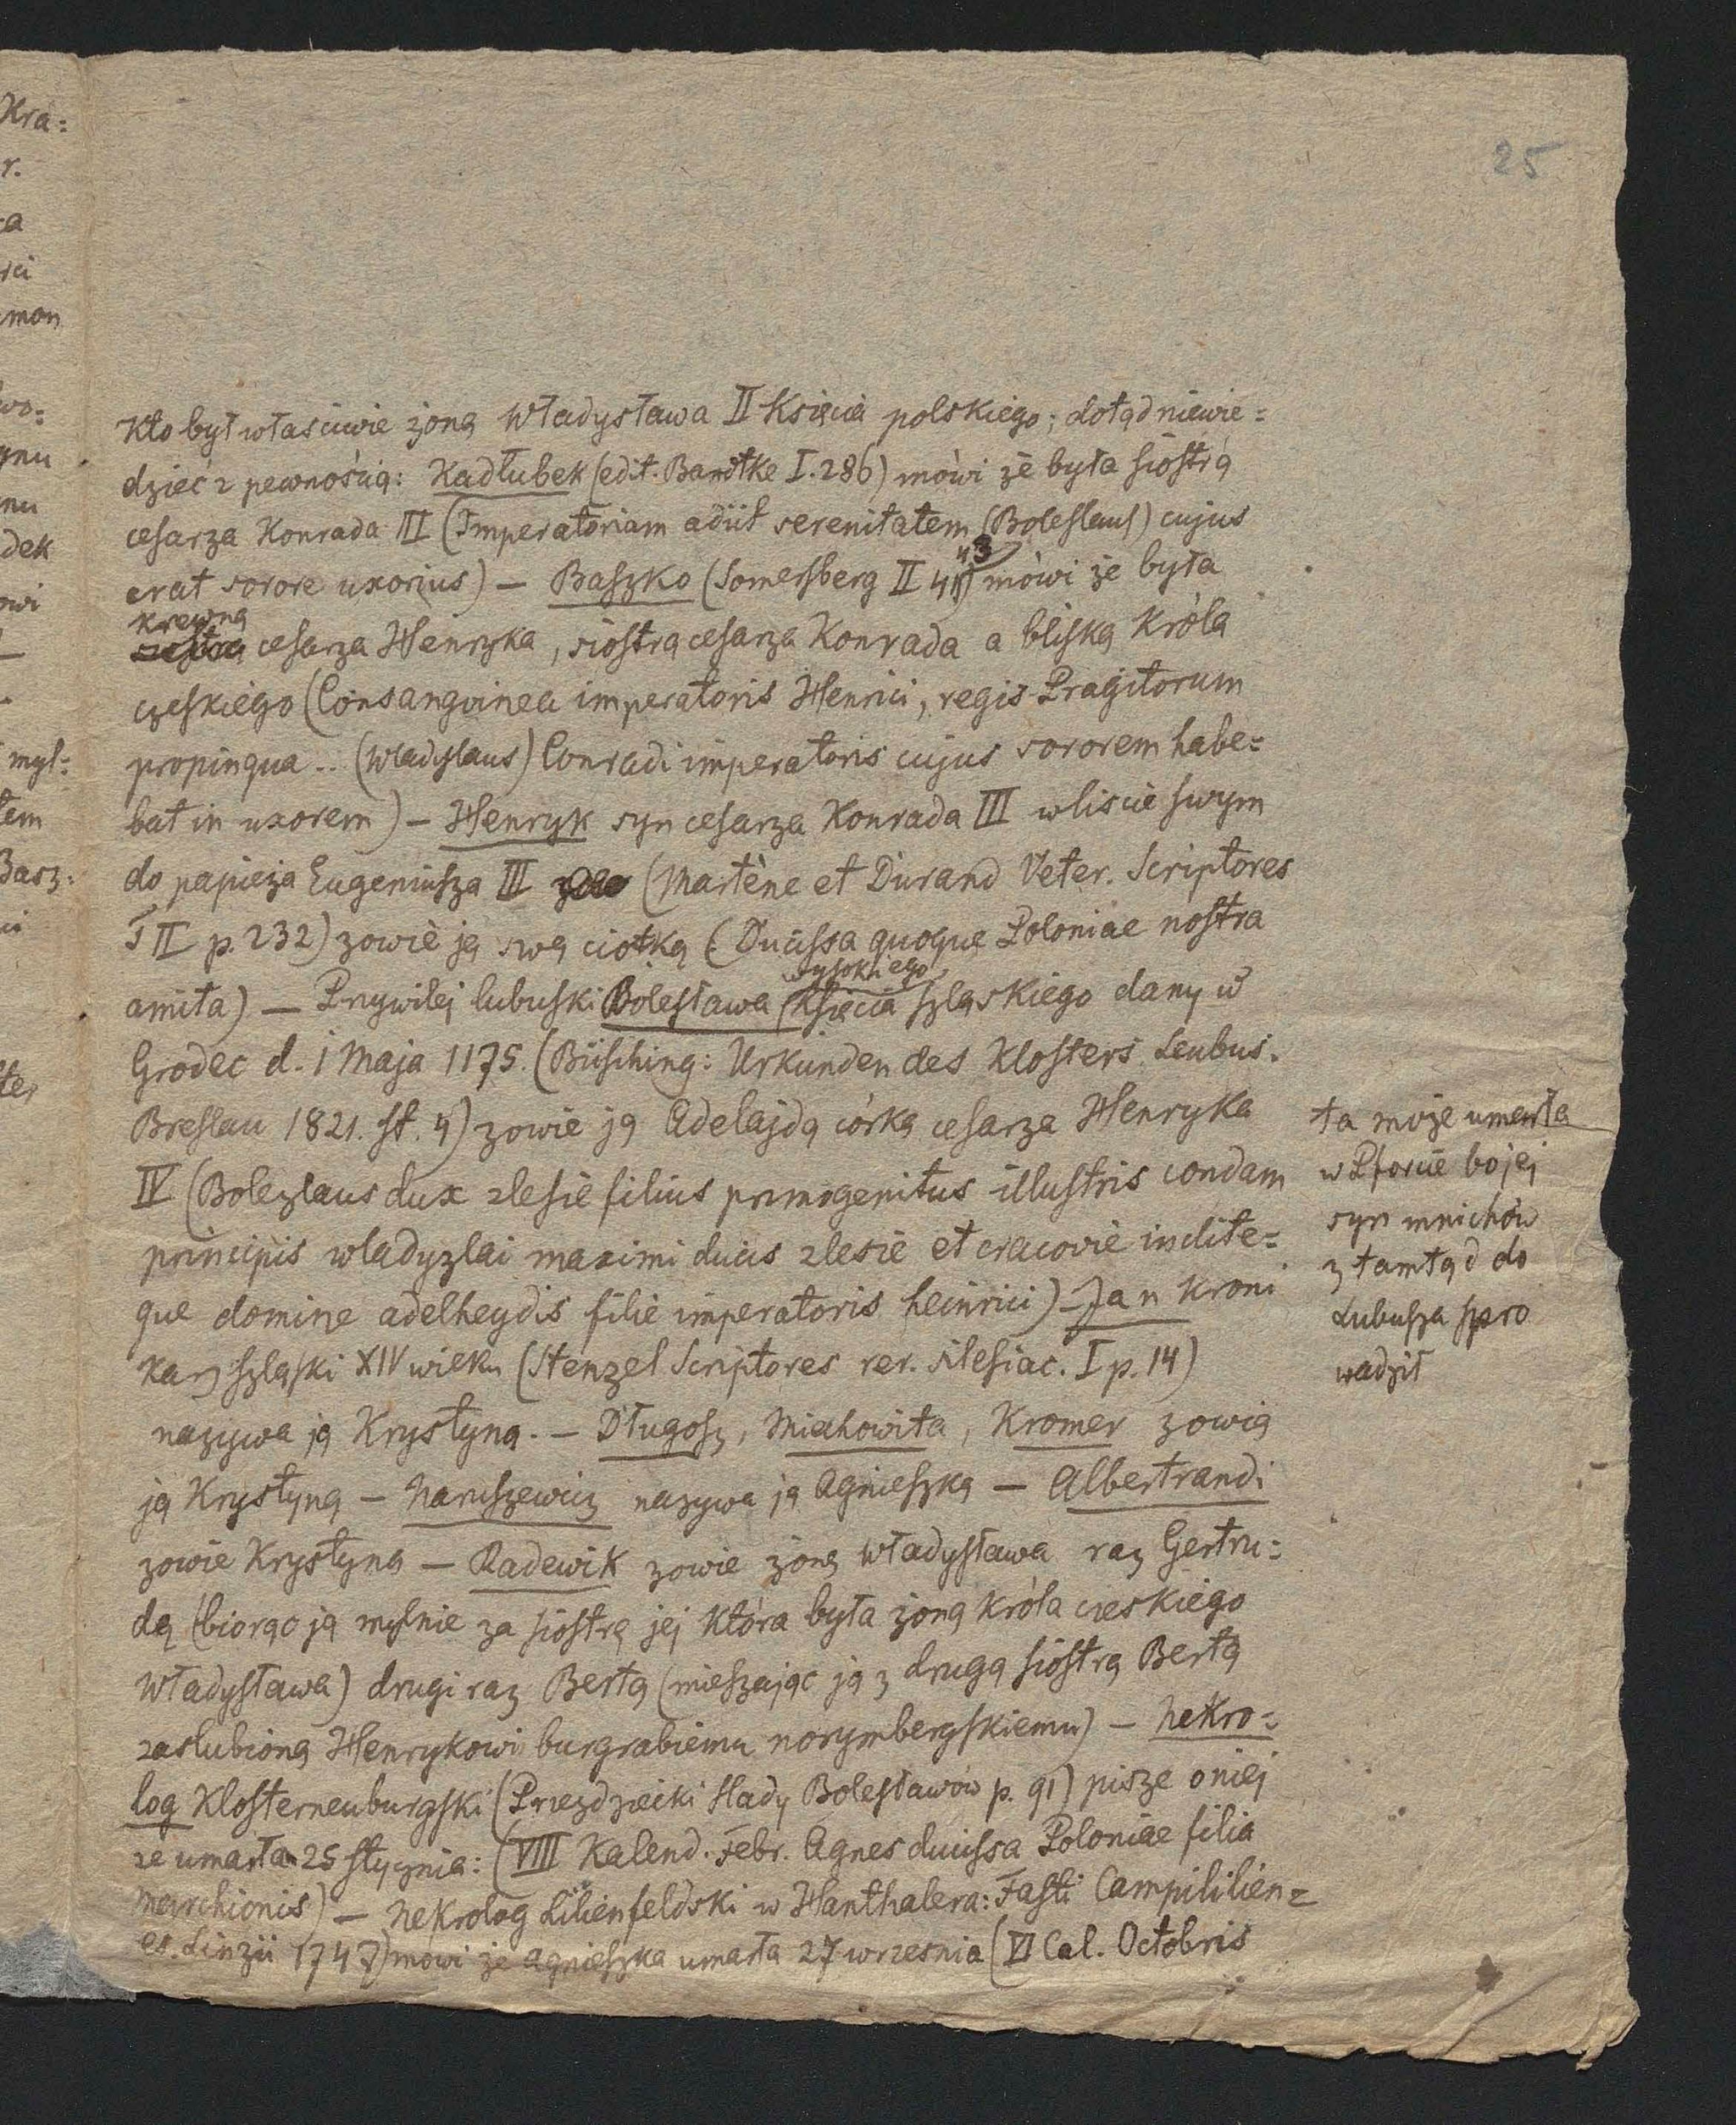 25
Kto był właściwie żoną Władysława II Księcia polskiego; dotąd niewie=
dzieć z pewnością: Kadłubek (edit. Bandtke I. 286) mówi że była siostrą
cesarza Konrada III (Imperatoriam adiit serenitatem (Boleslaus) cujus
erat sorore uxorius) — Baszko (Somersberg II 43) mówi że była
krewną
cesarza Henryka, siostrą cesarza Konrada a bliską Króla
czeskiego (Consangvinea imperatoris Henrici, regis Pragitorum
propinqua .. (Wladyslaus) Conradi imperatoris cujus sororem habe=
bat in uxorem) — Henryk syn cesarza Konrada III w liście swym
do papieża Eugeniusza III (Martène et Durand Veter. Scriptores
T II p. 232) zowie ją swą ciotką (Ducissa quoque Poloniae nostra
wysokiego
amita) — Przywilej lubuski Bolesława Księcia szląskiego dany w
Grodec d. 1 Maja 1175. (Büsching: Urkunden des Klosters Leubus.
Breslau 1821. st. 4) zowie ją Adelajdą córką cesarza Henryka
IV (Bolezlaus dux zlesie filius primogenitus illustris condam
principis wladyzlai maximi ducis zlesie et cracovie inclite=
que domine adelheydis filie imperatoris heinrici) — Jan Kroni
karz szląski XIV wieku (Stenzel Scriptores rer. silesiac. I p. 14)
nazywa ją Krystyną. — Długosz, Miechowita, Kromer zowią
ją Krystyną — Naruszewicz nazywa ją Agnieszką — Albertrandi
zowie Krystyną — Radewik zowie żonę Władysława raz Gertru=
dą (biorąc ją mylnie za siostrę jej która była żoną króla czeskiego
Władysława) drugi raz Bertą (mieszając ją z drugą siostrą Bertą
zaslubioną Henrykowi burgrabiemu norymbergskiemu) — Nekro=
log Klosterneuburgski (Przezdziecki slady Bolesławów p. 91) pisze o niej
ze umarła 25 stycznia: (VIII Kalend. Febr. Agnes ducissa Poloniae filia
Marchionis) — Nekrolog Lilienfeldski w Hanthalera: Fasti Campililien=
es. Linzii 1747) mowi że Agnieszka umarła 27 wrzesnia (VI Cal. Octobris
ta może umarła
w Pforcie bo jej
syn mnichów
z tamtąd do
Lubusza spro
wadził
Kra=
r.
mon
wo=
gnu
nu
dek
owi
myl=
tem
Basz=